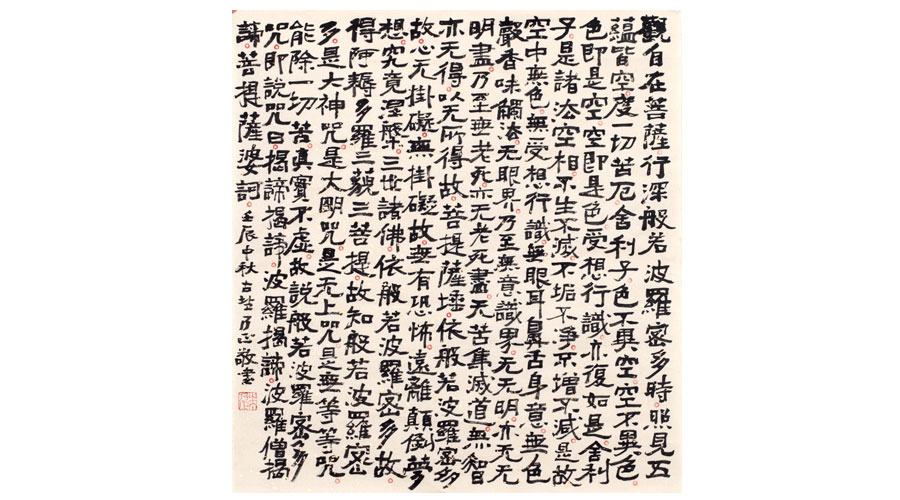 觀自在菩薩行深般若波羅密多時照見五
蘊皆空度一切苦厄舍利子色不異空空不異色
色即是空空即是色受想行識亦復如是舍利
子是諸法空相不生不滅不垢不淨不增不減是故
空中無色無受想行識無眼耳鼻舌身意無色
聲香味觸法无眼界乃至無意識界无无明亦无无
明盡乃至無老死亦无老死盡无苦集滅道無智
亦无得以无所得故菩提薩埵依般若波羅密多
故心无掛礙無掛礙故無有恐怖遠離顛倒夢
想究竟涅槃三世諸佛依般若波羅密多故
得阿耨多羅三藐三菩提故知般若波羅密
多是大神咒是大明咒是无上咒是無等等咒
能除一切苦真實不虛故說般若波羅密多
咒即說咒曰揭諦揭諦波羅揭諦波羅僧揭
諦菩提薩婆訶 壬辰中秋古乃正敬書